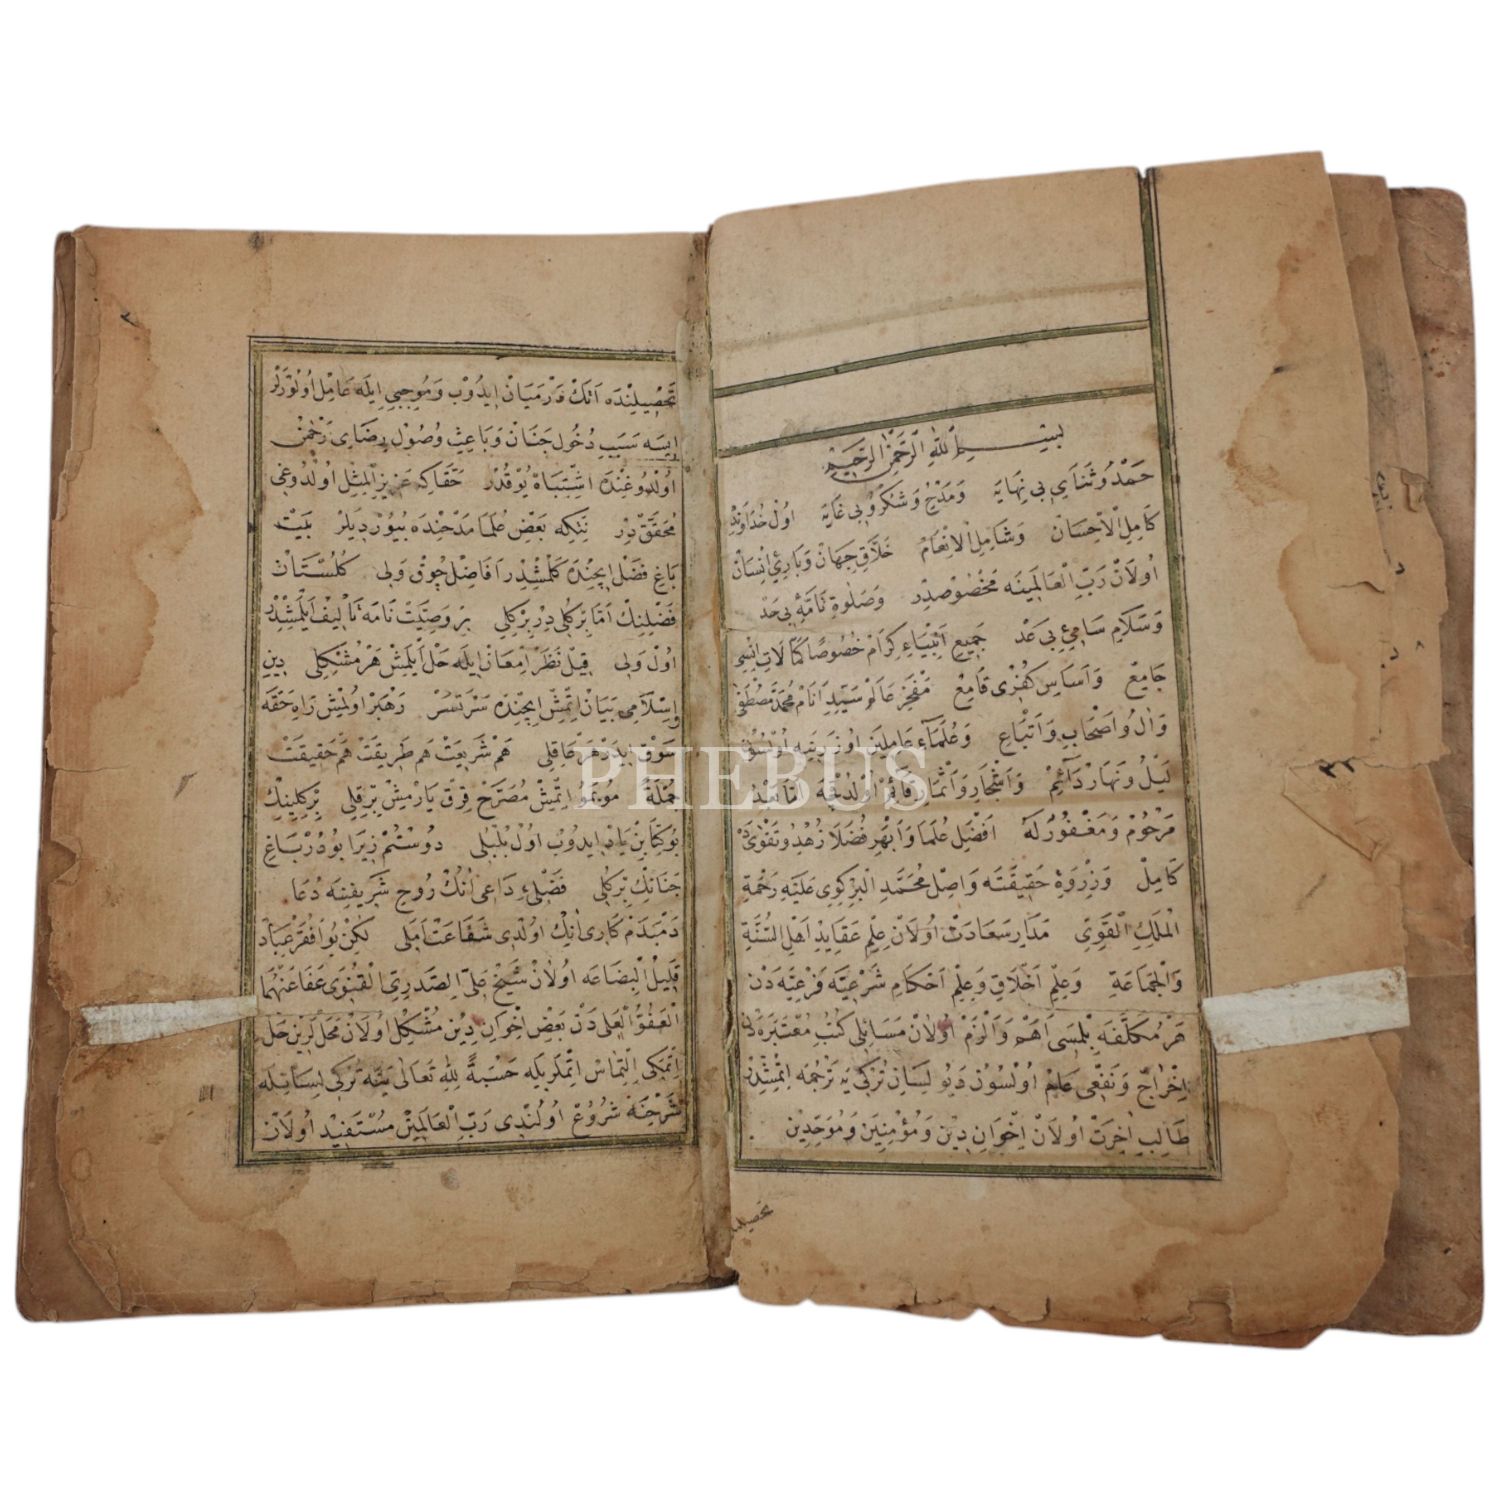 بسم الله الرحمن الرحيم
حَمْدُ وثَنَايِ بِي نِهَايَه وَمَدْحْ وَشُكْرُ بِي غَايَه اول خُدَاوَنْدِ
كَامِلِ الْاِحْسَانْ وَشَامِلِ الْاِنْعَامْ خَلَّاقِ جِهَانْ وَبَارِئِ اِنْسَانْ
اُولَانْ رَبِّ الْعَالَمِينَه مَخْصُوصْدِرْ وَصَلٰوةِ تَامَّۀِ بِي حَدْ
وَسَلَامِ سَامِئِ بِي عَدْ جَمِيعِ اَنْبِيَاءِ كِرَامْ خُصُوصًا كَمَالَاتِ اِنْسِي
جَامِعْ وَاَسَاسِ كُفْرِي قَامِعْ مَفْخَرِ عَالَمْ سَيِّدِ اَنَامْ مُحَمَّدْ مُصْطَفٰى
وَاٰلُ وَاَصْحَابِ وَاَتْبَاعِ وَعُلَمَاءِ عَامِلِينَ اوزرينه اُولْسُونْ
لَيْلُ وَنَهَارْ دَائِمْ وَاَشْجَارُ وَاَثْمَارْ قَائِمْ اُولْدُقْجَه اَمَّا بَعْدُ
مَرْحُومْ وَمَغْفُورٌ لَهْ اَفْضَلِ عُلَمَا وَاَبْهَرِ فُضَلَا زُهْدُ وتَقْوٰى دَه
كَامِلْ وَذِرْوَۀِ حَقِيقَتَه وَاصِلْ مُحَمَّدِ الْبِرْكِوِي عَلَيْهِ رَحْمَةُ
الْمَلِكِ الْقَوِي مَدَارِ سَعَادَتْ اُولَانْ عِلْمِ عَقَايِدِ اَهْلِ السُّنَّةِ
وَالْجَمَاعَةِ وَعِلْمِ اَخْلَاقِ وَعِلْمِ اَحْكَامِ شَرْعِيَّه فَرْعِيَّه دَنْ
هَرْ مُكَلَّفَه بِلْمَسِي اَهَمْ وَاَلْزَمْ اُولَانْ مَسَائِلِي كُتُبِ مُعْتَبَرَه دَنْ
اِخْرَاجْ وَنَفْعِي عَامْ اُولْسُونْ دَيُو لِسَانِ تُرْكِي يَه تَرْجَمَه اِتْمِشْدِرْ
طَالِبِ اٰخِرَتْ اُولَانْ اِخْوَانِ دِينْ وَمُؤْمِنِينَ وَمُوَحِّدِينْ
تحصيلنده
تَحْصِيلِنْدَه اَنِكْ دَرْمِيَانْ اِيدُوبْ وَمُوجِبِي اِيلَه عَامِلْ اُولُورْلَرْ
اِيسَه سَبَبِ دُخُولِ جِنَانْ وَبَاعِثِ وُصُولِ رِضَايِ رَحْمٰنْ
اُولْدُوغِنْدَه اِشْتِبَاهْ يُوقْدُرْ حَقَّاكِه عَزِيزُ الْمِثْلْ اُولْدُوغِي
مُحَقَّقْ دِرْ نِتَكِه بَعْضِ عُلَمَا مَدْحِنْدَه بُيُورْدِيلَرْ بَيْتْ
بَاغِ فَضْلْ اِيچِنْدَه كَلْمِشْدِرْ اَفَاضِلْ چُوقْ وَلِي كُلُسْتَانْ
فَضْلِنِكْ اَمَّا بِرْ كُلِي دِرْ بِرْكِلِي بِرْ وَصِيَّتْ نَامَه تَأْلِيفْ اَيْلَمِشْدِرْ
اُولْ وَلِي قِيلْ نَظَرْ اِمْعَانْ اِيلَه حَلْ اَيْلَمِشْ هَرْ مُشْكِلِي دِينِ
اِسْلَامِي بَيَانْ اِتْمِشْ اِيچِنْدَه سَرْتَسَرْ رَهْبَرْ اُولْمِشْ رَاهِ حَقَّه
سَوْقْ ايدر هَرْ عَاقِلِي هَمْ شَرِيعَتْ هَمْ طَرِيقَتْ هَمْ حَقِيقَتْ
جُمْلَۀ مُو بَمُو اِتْمِشْ مُصَرَّحْ قِرْقْ يَارْمِشْ بِرْ قِلِي بِرْكِلِينِكْ
بُو كِتَابِنْ يَادْ اِيدُوبْ اُولْ بُلْبُلِي دُوسْتُمْ زِيرَا بُودُرْ بَاغِ
جِنَانِكْ بِرْ كُلِي فَضْلِئِ دَاعِي اُنُكْ رُوحِ شَرِيفِنَه دُعَا
دَمْبَدَمْ كَارِي اَنِكْ اُولْدِي شَفَاعَتْ اَمَلِي لٰكِنْ بُو اَفْقَرِ عِبَادْ
قَلِيلُ الْبِضَاعَه اُولَانْ شَيْخْ عَلِيُّ الصَّدْرِيُّ الْقُنَوِيُّ عَفَا عَنْهُمَا
الْعَفُوُّ الْعَلِي دَنْ بَعْضِ اِخْوَانِ دِينْ مُشْكِلْ اُولَانْ مَحَلْلَرِينْ حَلْ
اِتْمَكِي اِلْتِمَاسْ اِتْمَكْلَرِيلَه حِسْبَةً لِلّٰهِ تَعَالٰى يِنَه تُرْكِي لِسَانِيلَه
شَرْحِنَه شُرُوعْ اُولُنْدِي رَبِّ الْعَالَمِينْ مُسْتَفِيدْ اُولَانْ
PHEBUS